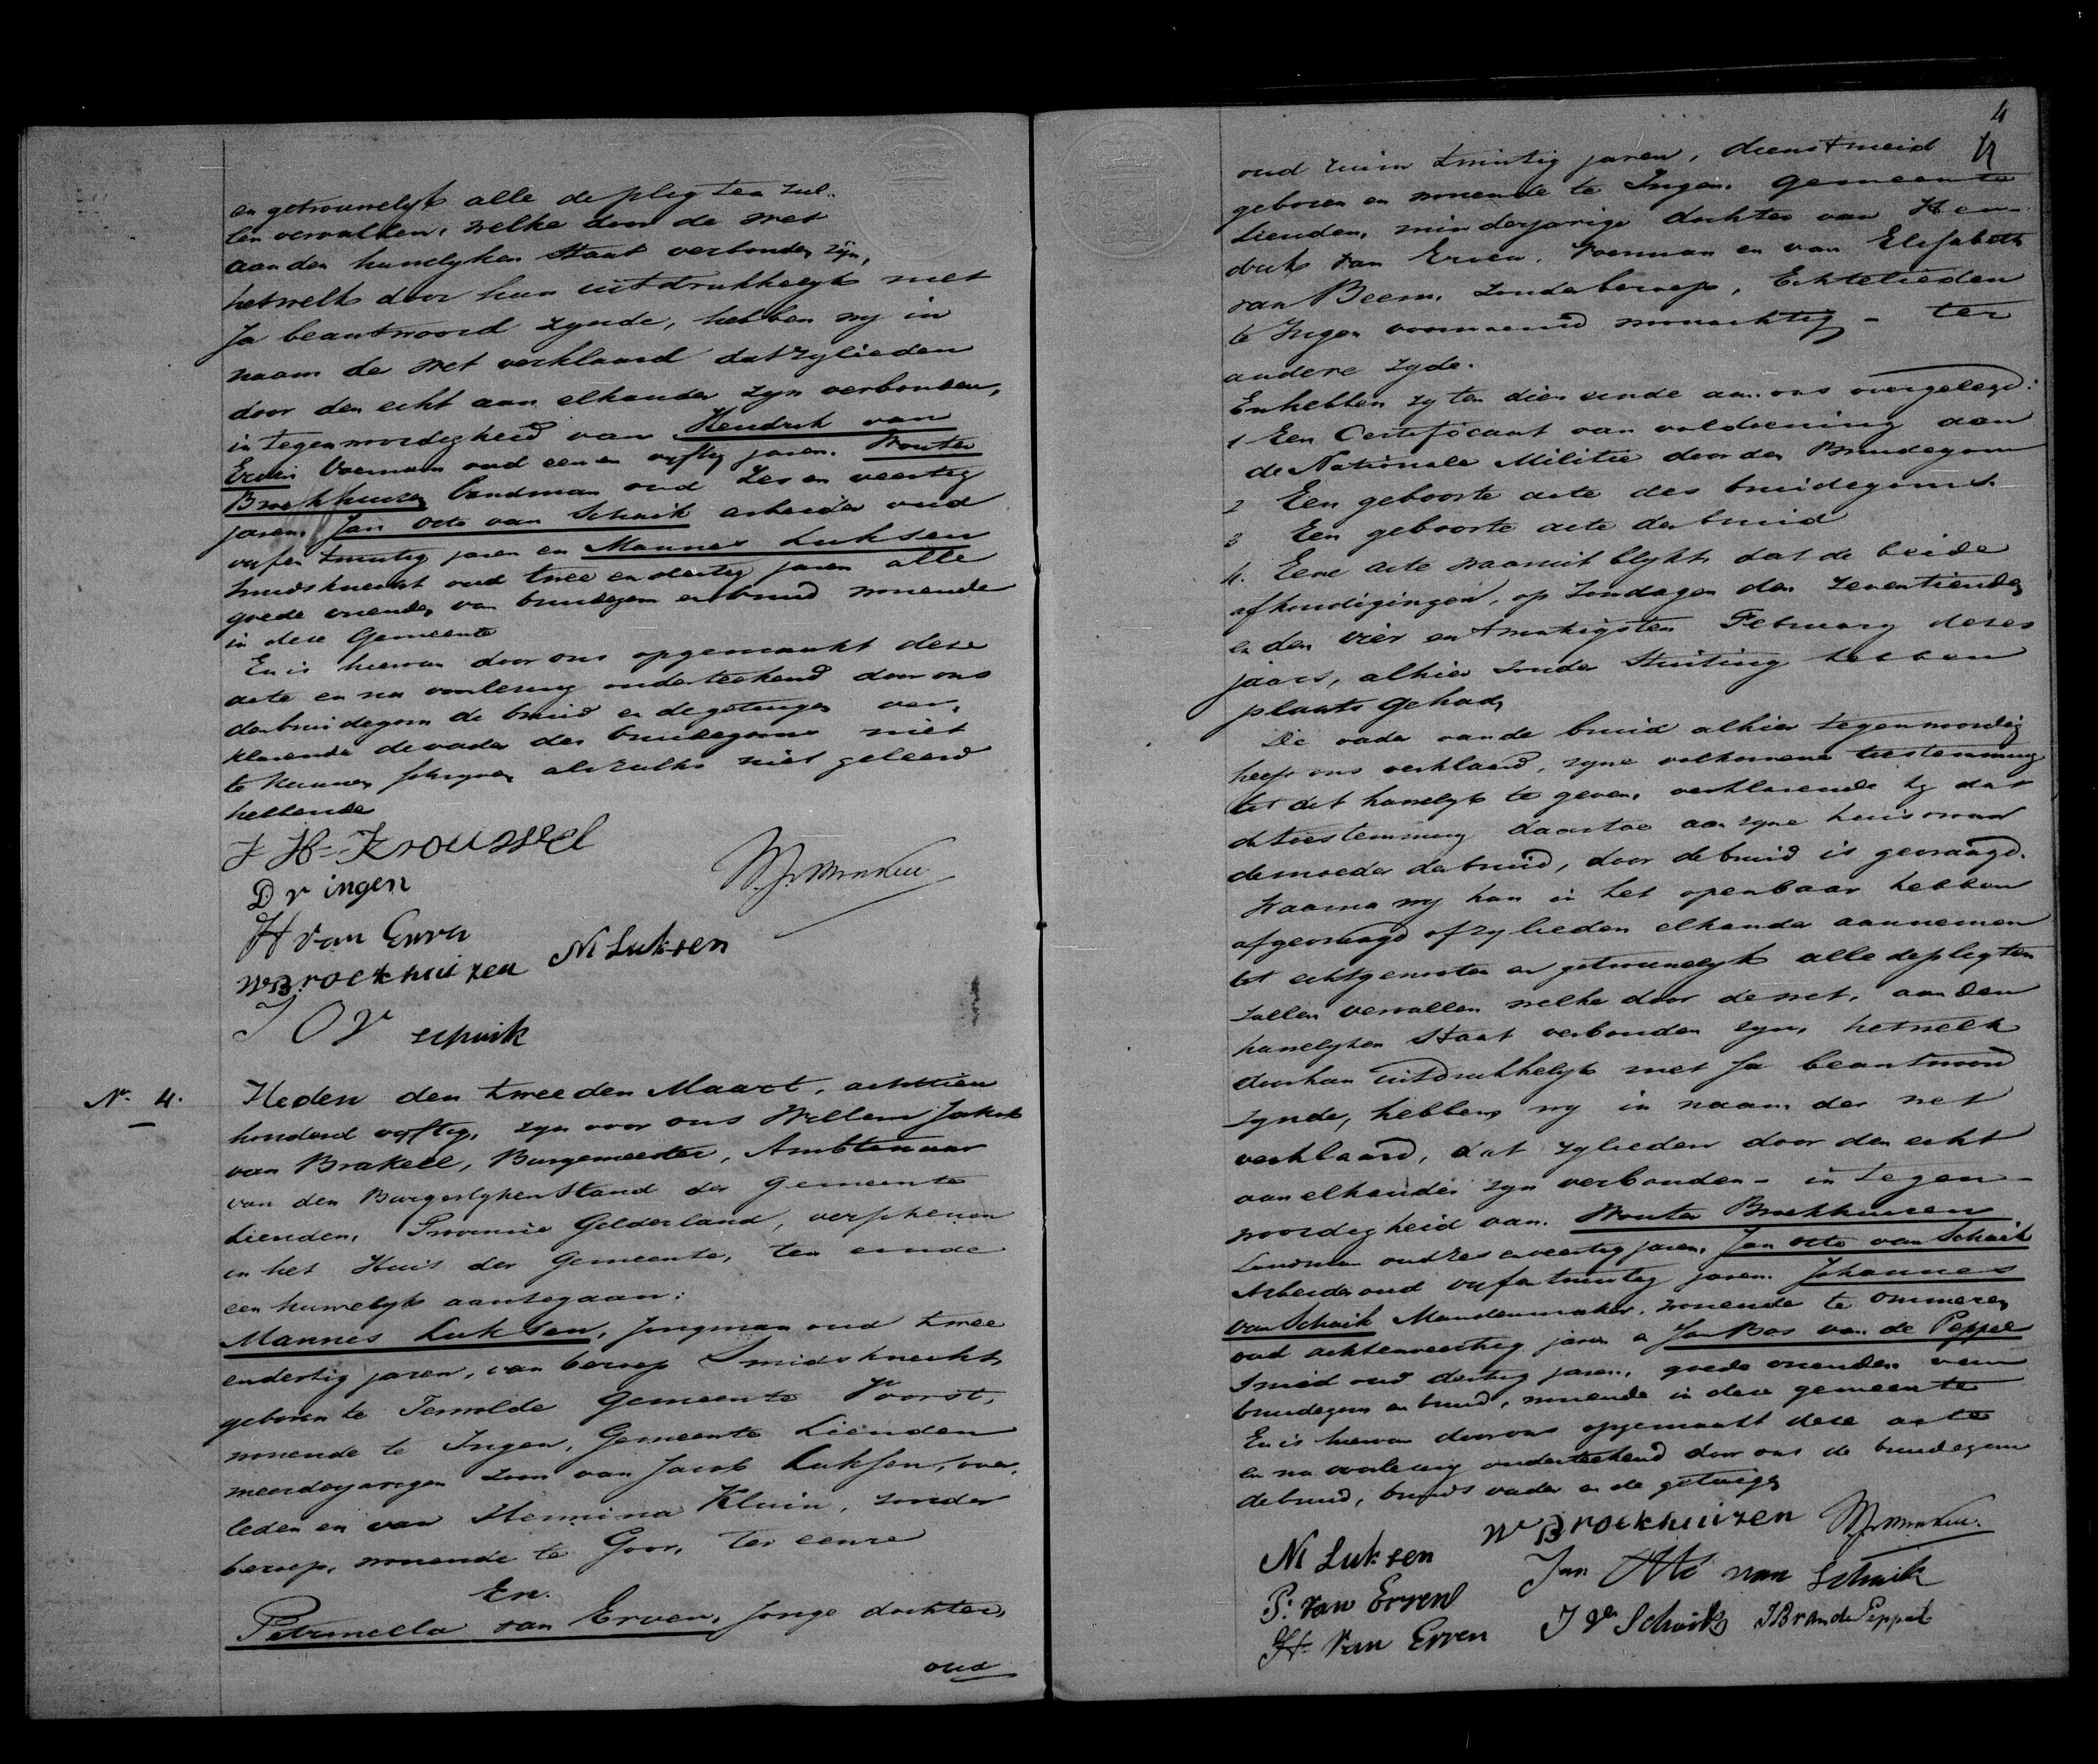 en getrouwelyk alle de plegten zul-
len vervullen, welke door de wet
aan den huwelyken Staat verbonden zyn,
hetwelk door hun uitdrukkelyk met
Ja beantwoord zynde, hebben wy in
naam der wet verklaard dat zylieden
door den echt aan elkander zyn verbonden,
in tegenwoordigheid van Hendrik van
Erven Voerman oud een en vyftig jaren. Wouter
Broekhuizen Landman oud Zes en veertig
jaren. Jan Otto van Schaik arbeider oud
vyfen twintig jaren en Mannes Luksen
Smidsknecht oud twee en dertig jaren alle
goede vrienden van bruidegom en bruid wonende
in deze Gemeente
En is hiervan door ons opgemaakt deze
acte en na voorlezing onderteekend door ons
den bruidegom de bruid en de getuigen ver-
klarende de vader des bruidegoms niet
te kunnen schryven als zulks niet geleerd
hebbende
J H Kroussel
D v ingen
H van Erven
W Broekhuizen M Luksen
J O V schaik
No. 4.
Heden den tweeden Maart, achttien
honderd vyftig, zyn voor ons Willem Jakob
van Brakell, Burgemeester, Ambtenaar
van den Burgerlyken Stand der Gemeente
Lienden, Provincie Gelderland, verschenen
in het Huis der Gemeente, ten einde
een huwelyk aantegaan:
Mannes Luksen, jongman oud twee
endertig jaren, van beroep Smidsknecht
geboren te Terwolde Gemeente Voorst,
wonende te Ingen, Gemeente Lienden
meerderjarigen zoon van Jacob Luksen, over-
leden en van Hermina Kluin, zonder
beroep, wonende te Goor, ter eenre
En.
Petronella van Erven, Jonge dochter,
oud
4
oud ruim twintig jaren, dienstmeid
geboren en wonende te Ingen. Gemeente
Lienden, minderjarige dochter van Hen-
drik van Erven, Voerman en van Elisabeth
van Beem, zonder beroep, Echtelieden
te Ingen voornoemd woonachtig - ter
andere zyde.
En hebben zy ten dien einde aan ons overgelegd:
1 Een Certificaat van voldoening aan
de Nationale Militie door den Bruidegom
2 Een geboorte acte des bruidegoms.
3 Een geboorte acte der bruid
4. Eene acte waaruit blykt, dat de beide
afkondigingen, op Zondagen den Zeventienden
en den vier en twintigsten February dezes
jaars, alhier zonder Stuiting hebben
plaats gehad,
De vader van de bruid alhier tegenwoordig
heeft ons verklaard, zyne volkomene toestemming
tot dit huwelyk te geven, verklarende hy dat
de toestemming daartoe aan zyne huisvrouw
de moeder der bruid, door de bruid is gevraagd.
Waarna wy hun in het openbaar hebben
afgevraagd of zylieden elkander aannemen
tot echtgenooten en getrouwelyk alle de plegten
zullen vervullen welke door de wet, aan den
huwelyken Staat verbonden zyn, hetwelk
door hun uitdrukkelyk met Ja beantwoord
zynde, hebben wy in naam der wet
verklaard, dat zylieden door den echt
aan elkander zyn verbonden - in tegen-
woordigheid van. Wouter Broekhuizen
Landman oud zes en veertig jaren, Jan Otto van Schaik
Arbeider oud vyfentwintig jaren. Johannes
van Schaik Mandenmaker, wonende te Ommeren
oud achtenveertig jaren en Jan Bos van de Peppel
Smid oud dertig jaren, goede vrienden van
bruidegom en bruid, wonende in deze gemeente
En is hiervan door ons opgemaakt deze acte
en na voorlezing onderteekend door ons de bruidegom
de bruid, bruids vader en de getuigen
M Luksen W Broekhuizen
P. van Erven Jan Otto van Schaik
H. van Erven J V Schaik J B van de Peppel